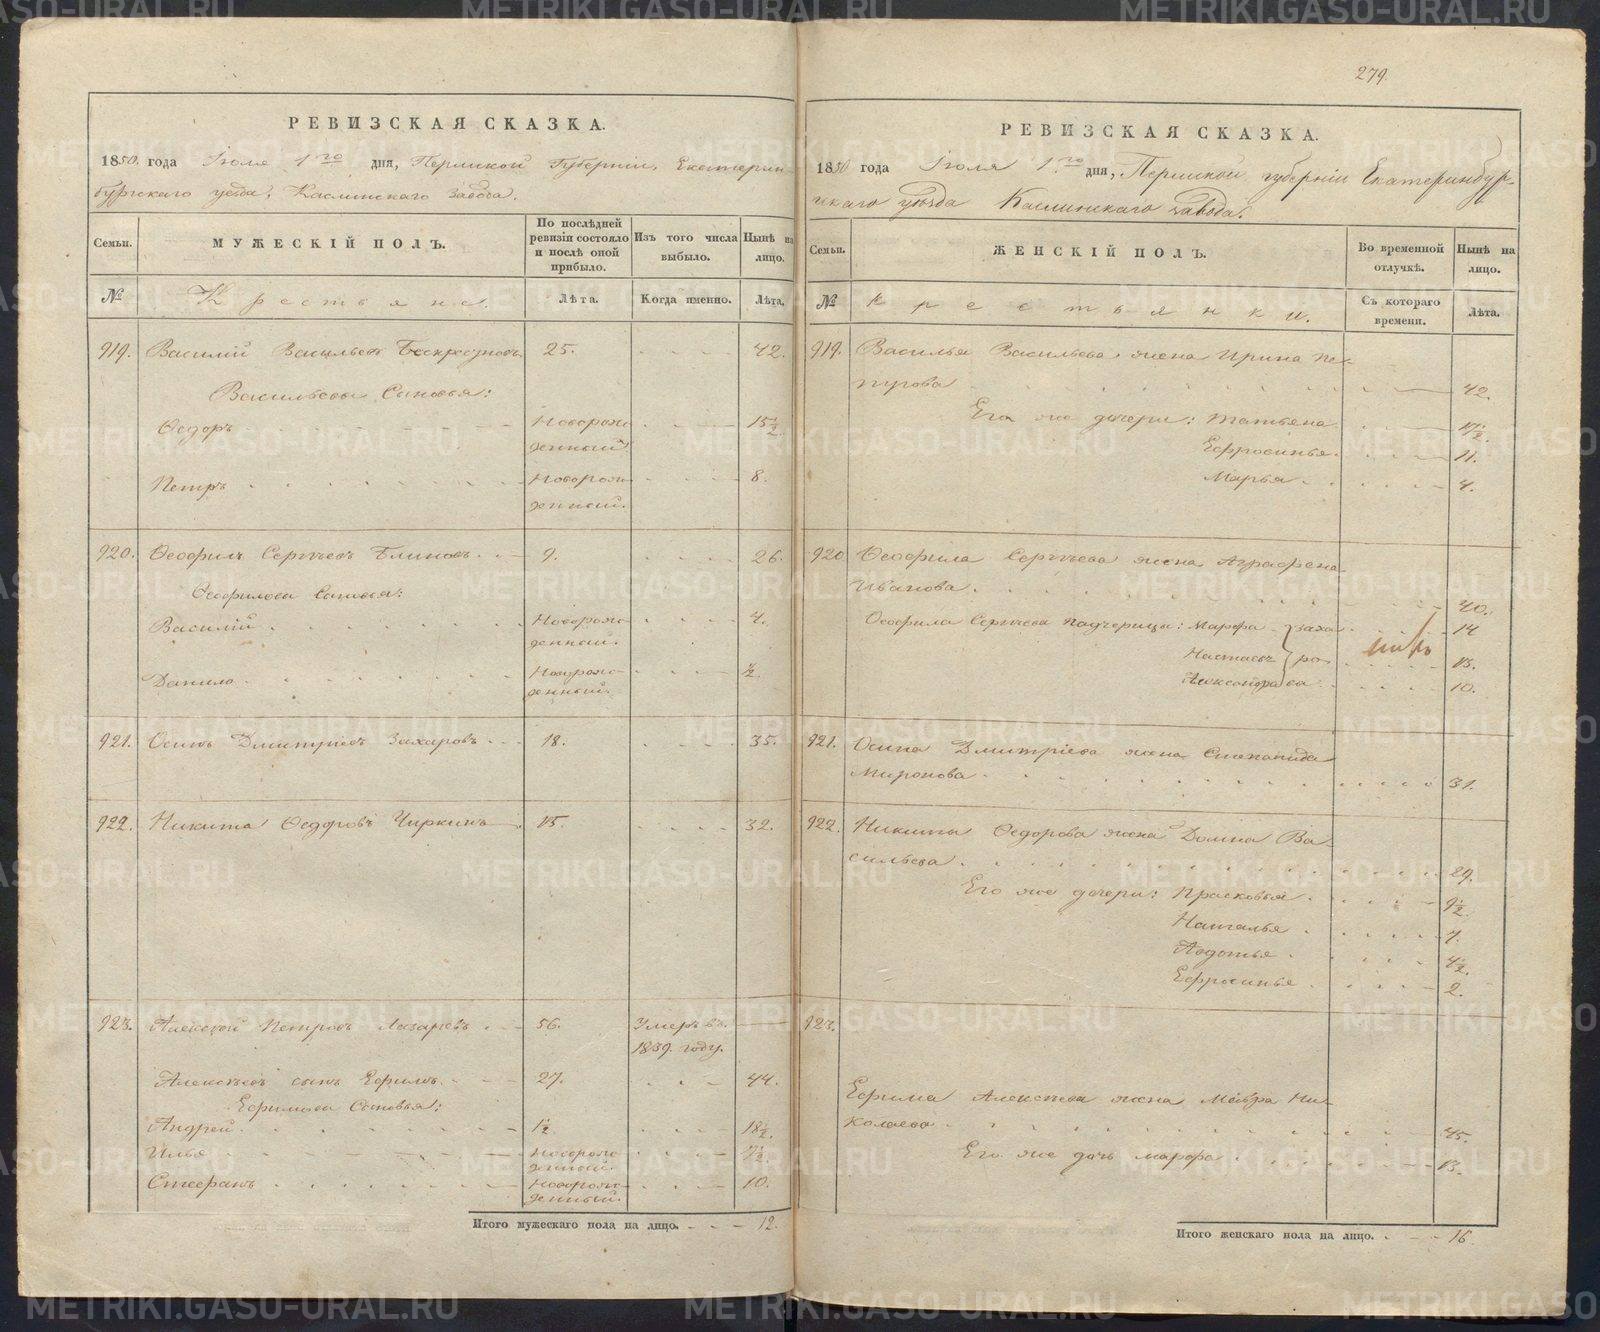 279.
РЕВИЗСКАЯ СКАЗКА.
1850. года Іюля 1го дня, Пермской Губерніи, Екатерин-
бургскаго уезда, Каслинскаго Завода.
Семьи.
МУЖЕСКІЙ ПОЛЪ.
По послѣдней ревизіи состояло и послѣ оной прибыло.
Изъ того числа выбыло.
Нынѣ на лицо.
№
Крестьяне.
Лѣта.
Когда именно.
Лѣта.
919. Василій Васильевъ 25. 42.
Васильевы Сыновья:
Ѳедоръ Новорож- 15½
денный
Петръ Новорож- 8.
денный.
920. Ѳеофилъ Сергѣевъ Блиновъ 9. 26.
Ѳеофилова Сыновья:
Василій Новорож- 4.
денный.
Данило Новорож- ½
денный.
921. Осипъ Дмитріевъ Захаровъ 18. 35.
922. Никита Ѳедоровъ Чиркинъ 15. 32.
923. Алексѣй Петровъ Лазаревъ 56. Умеръ въ
1839. году.
Алексѣевъ сынъ Ефимъ 27. 44.
Ефимова Сыновья:
Андрей 1½ 18½
Илья Новорож-
денный.
Стефанъ Новорож- 10.
денный.
Итого мужескаго пола на лицо. 12.
РЕВИЗСКАЯ СКАЗКА.
1850 года Іюля 1го дня, Пермской губерніи Екатеринбур-
скаго уѣзда Каслинскаго завода.
Семьи.
ЖЕНСКІЙ ПОЛЪ.
Во временной отлучкѣ.
Нынѣ на лицо.
№
Крестьянки.
Съ котораго времени.
Лѣта.
919. Василья Васильева жена Ирина
42.
Его же дочери: Татьяна
Ефросинья 11.
Марья 4.
920 Ѳеофила Сергѣева жена Аграфена
Иванова 40.
Ѳеофила Сергѣева падчерицы: Марфа } Заха- 14
Настасья } ро- 13.
Александра } ва 10.
921. Осипа Дмитріева жена Степанида
Миронова 31.
922. Никиты Ѳедорова жена Домна Ва-
сильева 29.
Его же дочери: Прасковья 9½
Наталья 7.
Авдотья 4½
Ефросинья 2.
923.
Ефима Алексѣева жена Мавра Ни-
колаева 45.
Его же дочь Марфа 13.
Итого женскаго пола на лицо. 16.
METRIKI.GASO-URAL.RU